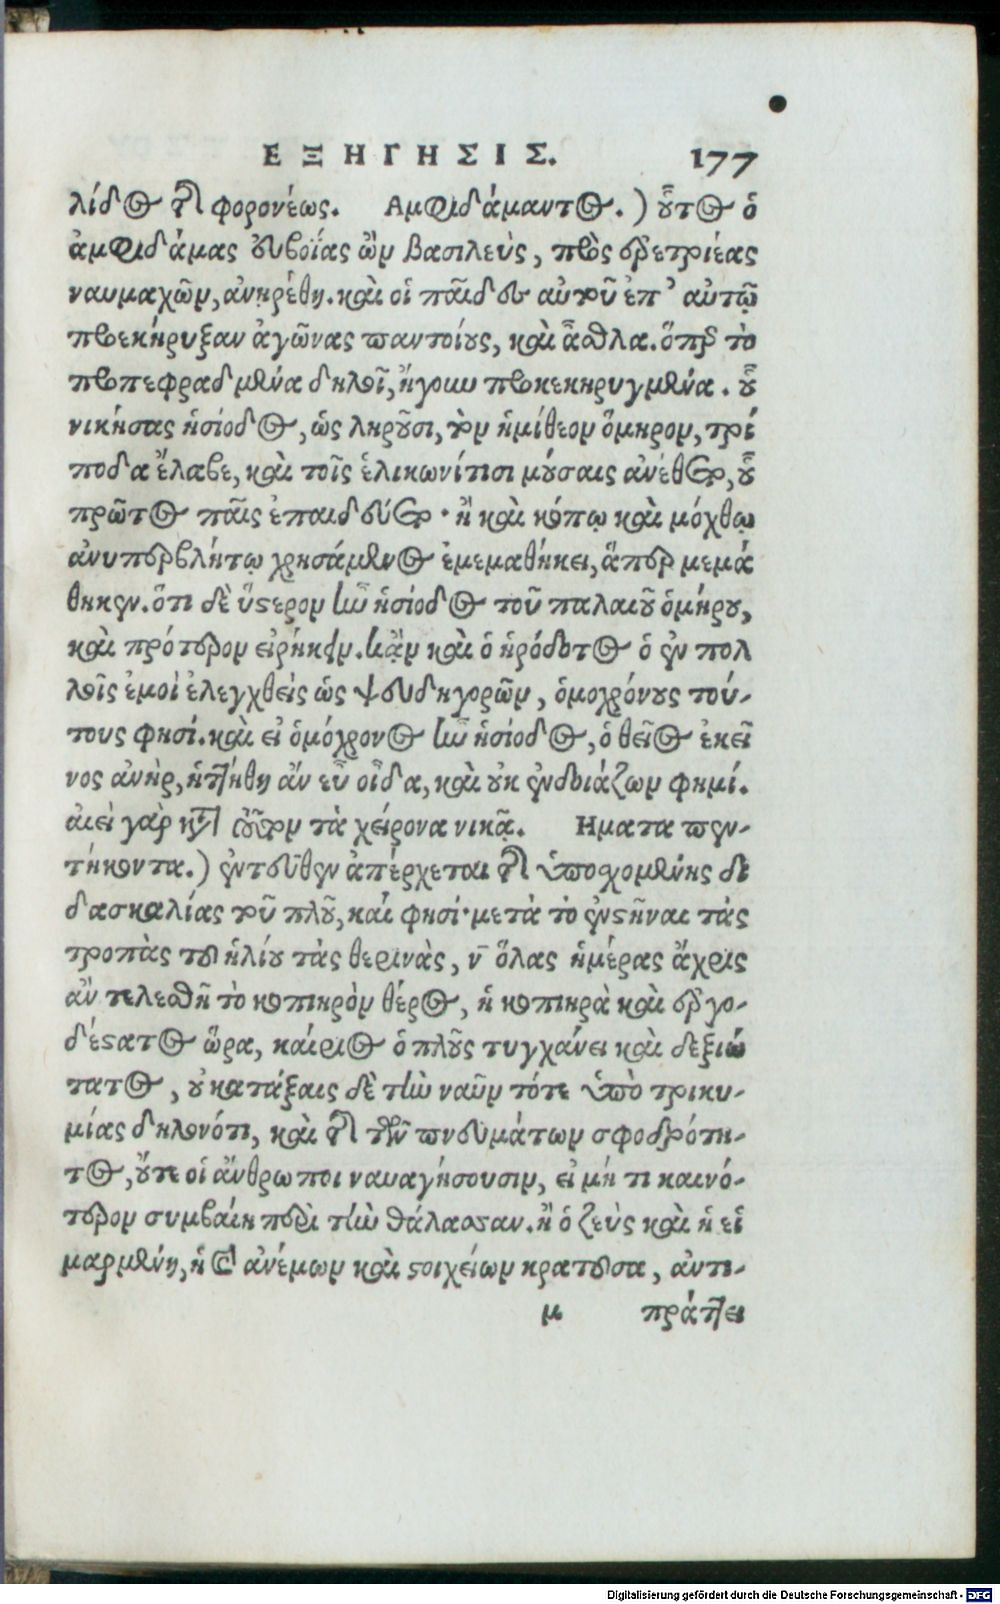 ΕΞΗΓΗΣΙΣ. 177
λίδος τῆς φορονέως. Αμφιδάμαντος.) οὗτος ὁ
ἀμφιδάμας εὐβοίας ὢν βασιλεὺς, πρὸς ἐρετριέας
ναυμαχῶν, ἀνῃρέθη. καὶ οἱ παῖδες αὐτοῦ ἐπ' αὐτῷ
προεκήρυξαν ἀγῶνας παντοίους, καὶ ἆθλα. ὅπερ τὸ
προπεφραδμένα δηλοῖ, ἤγουν προκεκηρυγμένα. οὗ
νικήσας ἡσίοδος, ὡς ληροῦσι, τὸν ἡμίθεον ὅμηρον, τρί
ποδα ἔλαβε, καὶ τοῖς ἑλικωνίτισι μούσαις ἀνέθετο, οὗ
πρῶτος παῖς ἐπαιδεύετο. ἢ καὶ κόπῳ καὶ μόχθῳ
ἀνυπερβλήτῳ χρησάμενος ἐμεμαθήκει, ἅπερ μεμά
θηκεν. ὅτι δὲ ὕστερον ἦν ἡσίοδος τοῦ παλαιοῦ ὁμήρου,
καὶ πρότερον εἰρήκειν. κἂν καὶ ὁ ἡρόδοτος ὁ ἐν πολ
λοῖς ἐμοὶ ἐλεγχθεὶς ὡς ψευδηγορῶν, ὁμοχρόνους τού-
τους φησί. καὶ εἰ ὁμόχρονος ἦν ἡσίοδος, ὁ θεῖος ἐκεῖ
νος ἀνὴρ, ἡττήθη ἂν εὖ οἶδα, καὶ οὐκ ἐνδοιάζων φημί.
ἀεὶ γὰρ κατ' οὖρον τὰ χείρονα νικᾷ. Ηματα πεν-
τήκοντα.) ἐντεῦθεν ἀπέρχεται τῆς ὑποσχομένης δι
δασκαλίας τοῦ πλοῦ, καί φησι· μετὰ τὸ ἐνστῆναι τὰς
τροπὰς τοῦ ἡλίου τὰς θερινὰς, ν ὅλας ἡμέρας ἄχρις
ἂν τελεσθῇ τὸ κοπιηρὸν θέρος, ἡ κοπιηρὰ καὶ ἐργο-
δέστατος ὥρα, καίριος ὁ πλοῦς τυγχάνει καὶ δεξιώ
τατος, οὐ κατάξαις δὲ τὴν ναῦν τότε ὑπὸ τρικυ-
μίας δηλονότι, καὶ τῆς τῶν πνευμάτων σφοδρότη-
τος, οὔτε οἱ ἄνθρωποι ναυαγήσουσιν, εἰ μή τι καινό-
τερον συμβαίη περὶ τὴν θάλασσαν. ἢ ὁ ζεὺς καὶ ἡ εἱ
μαρμένη, ἡ τῶν ἀνέμων καὶ στοιχείων κρατοῦσα, ἀντι-
μ πράττει
Digitalisierung gefördert durch die Deutsche Forschungsgemeinschaft - DFG